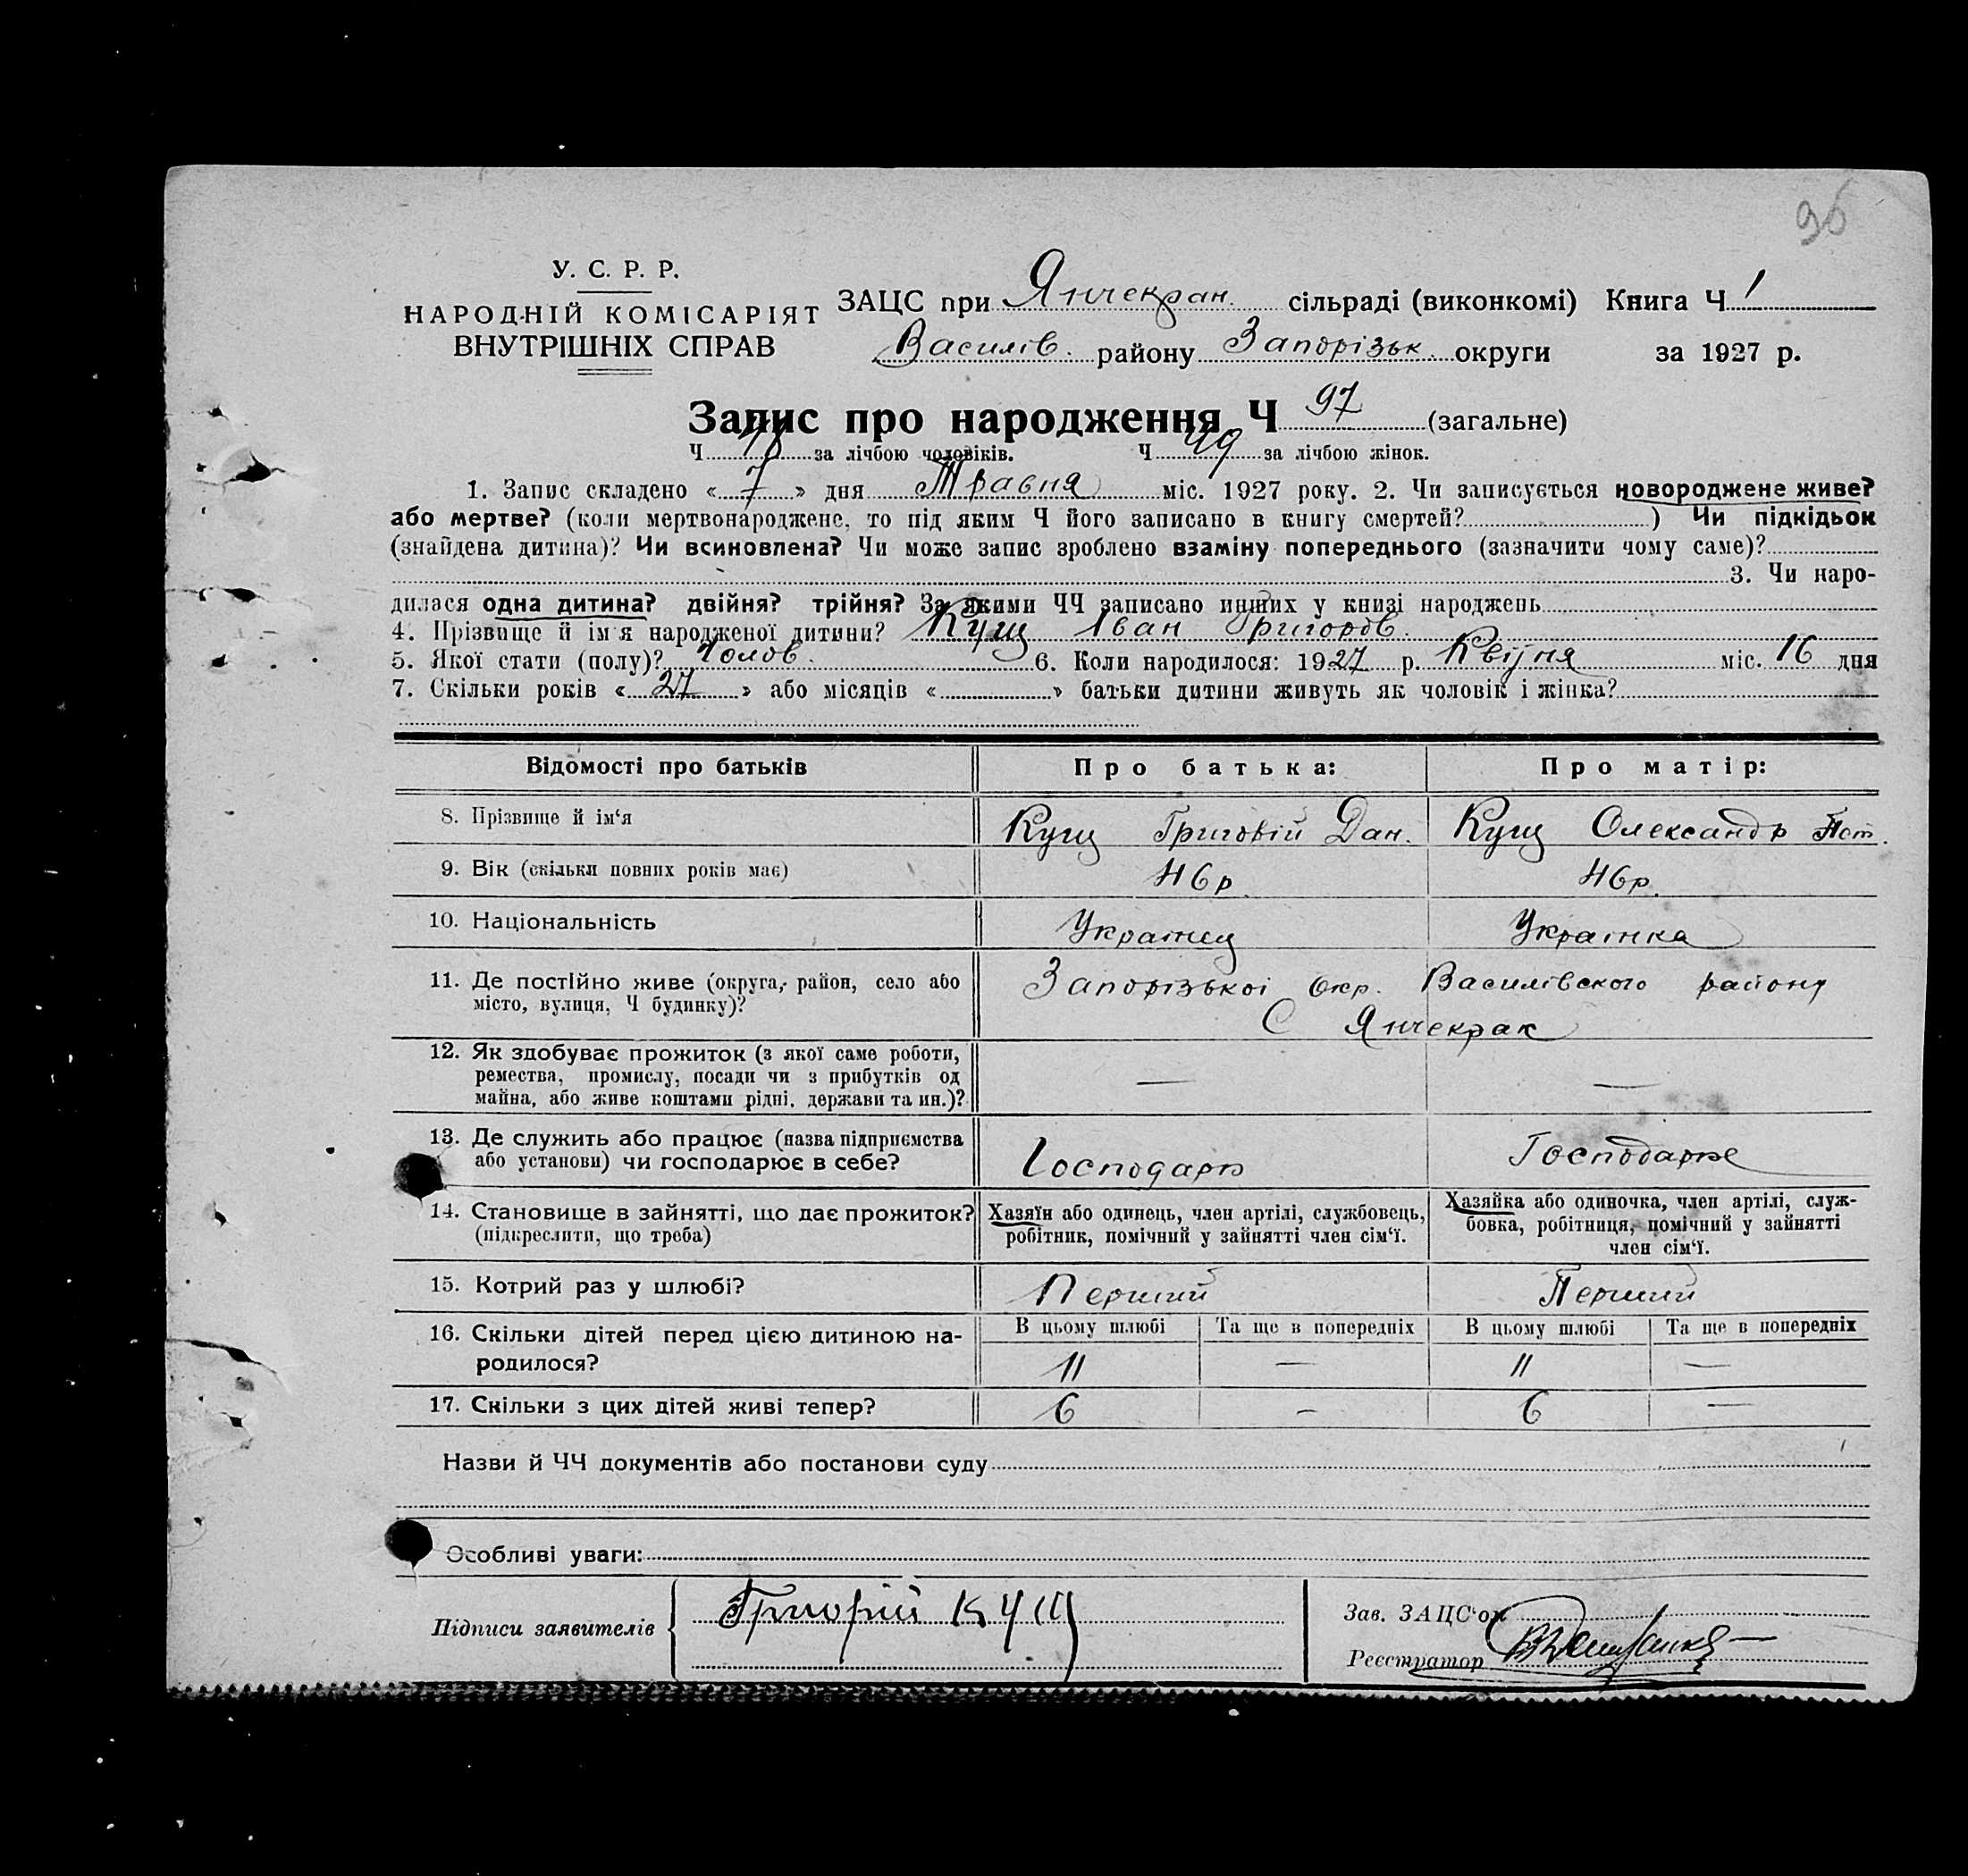 96
У. С. Р. Р.
НАРОДНІЙ КОМІСАРІЯТ
ВНУТРІШНІХ СПРАВ
ЗАЦС при Янчекран. сільраді (виконкомі) Книга Ч 1
Василів. району Запорізьк. округи за 1927 р.
Запис про народження Ч 97 (загальне)
Ч за лічбою чоловіків. Ч 49 за лічбою жінок.
1. Запис складено « 7 » дня Травня міс. 1927 року. 2. Чи записується новороджене живе?
або мертве? (коли мертвонароджене, то під яким Ч його записано в книгу смертей? ) Чи підкідьок
(знайдена дитина)? Чи всиновлена? Чи може запис зроблено взаміну попереднього (зазначити чому саме)?
3. Чи наро-
дилася одна дитина? двійня? трійня? За якими ЧЧ записано инших у книзі народжень
4. Прізвище й ім'я народженої дитини? Кущ Іван Григоров.
5. Якої стати (полу)? Чолов. 6. Коли народилося: 1927 р. Квітня міс. 16 дня
7. Скільки років « 27 » або місяців « » батьки дитини живуть як чоловік і жінка?
Відомості про батьків Про батька: Про матір:
8. Прізвище й ім'я Кущ Григорій Дан. Кущ Олександр Пст.
9. Вік (скільки повних років має) 46р. 46р.
10. Національність Українец Українка
11. Де постійно живе (округа, район, село або
місто, вулиця, Ч будинку)?
Запорізької Окр. Василівского району
С Янчекрак
12. Як здобуває прожиток (з якої саме роботи,
ремества, промислу, посади чи з прибутків од
майна, або живе коштами рідні, держави та ин.)?
— —
13. Де служить або працює (назва підприємства
або установи) чи господарює в себе?
Господарь Господарке
14. Становище в зайнятті, що дає прожиток?
(підкреслити, що треба)
Хазяїн або одинець, член артілі, службовець,
робітник, помічний у зайнятті член сім'ї.
Хазяйка або одиночка, член артілі, служ-
бовка, робітниця, помічний у зайнятті
член сім'ї.
15. Котрий раз у шлюбі? Перший Перший
16. Скільки дітей перед цією дитиною на-
родилося?
В цьому шлюбі Та ще в попередніх В цьому шлюбі Та ще в попередніх
11 — 11 —
17. Скільки з цих дітей живі тепер? 6 — 6 —
Назви й ЧЧ документів або постанови суду
Особливі уваги:
Підписи заявителів Григорій Кущ
Зав. ЗАЦС'ом
Реєстратор